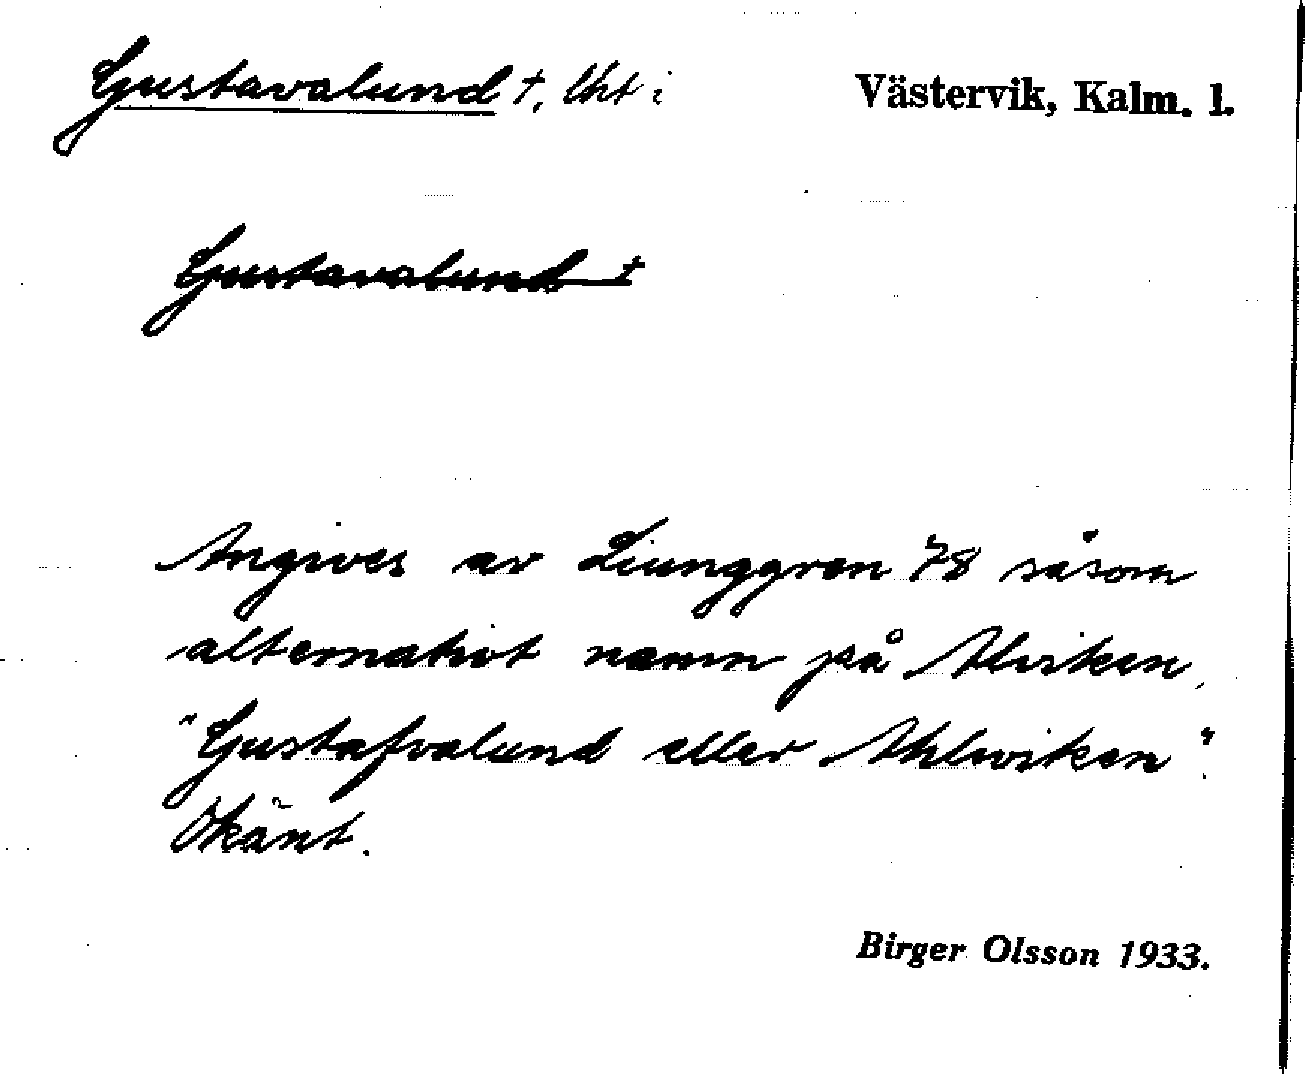 Gustavalund †, lht i
Västervik, Kalm. l.
Gustavalund †
Angives av Liunggren 78 såsom
alternativt namn på Alviken,
"Gustafvalund eller Ahlwiken".
Okänt.
Birger Olsson 1933.